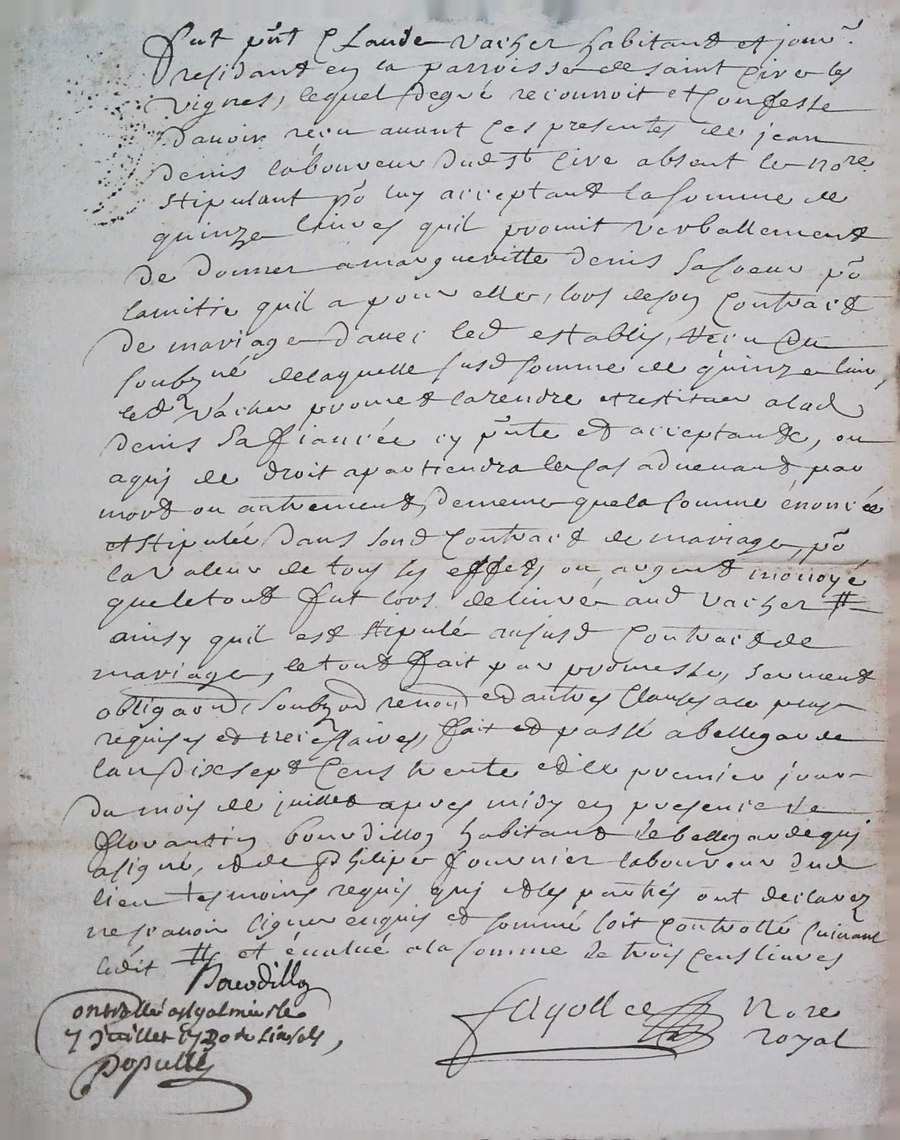 fut pnt Claude vacher habitant et jour.
residant en la parroisse de saint Cire les
vignes, lequel degré reconnoit et Confesse
davoir reçu avant Ces presentes de jean
denis laboureur dud st Cire absent le nore.
stipulant po luy acceptant la somme de
quinze livres quil promit verballement
de donner a margueritte denis sa soeur po
lamitie quil a pour elle, lors de son Contract
de mariage d'avec led establi,
soubzné de laquelle susd somme de quinze livres
led Vacher promet la rendre et restituer a lad
denis sa fiancée cy pnte et acceptante, ou
a quj de droit apartiendra le Cas advenant par
mort ou autrement, de meme que la somme énoncée
et stipulée dans sond Contract de mariage, po
la valeur de tous les effets ou argent monoyé
que le tout fut lors delivré aud Vacher #
ainsy quil est stipulé ausud Contract de
mariage, le tout fait par promesse, serment
obligaond, soubzond renond et autres Clauses a ce
requises et necessaires, fait et passé a bellegarde
lan dix sept Cens trente et le premier jour
du mois de juillet apres midy en presence de
florantin bourdillon habitant de bellegarde quj
a signé, et de Philipe fournier laboureur dud
lieu tesmoins requis quj et les parties ont declarez
ne savoir signer enquis et sommé soit Controllé suivant
ledit # et évalué a la somme de trois Cens livres
Bourdillon
ontrollé a
7 Juillet 1730
Populle
fayolle Nore
royal